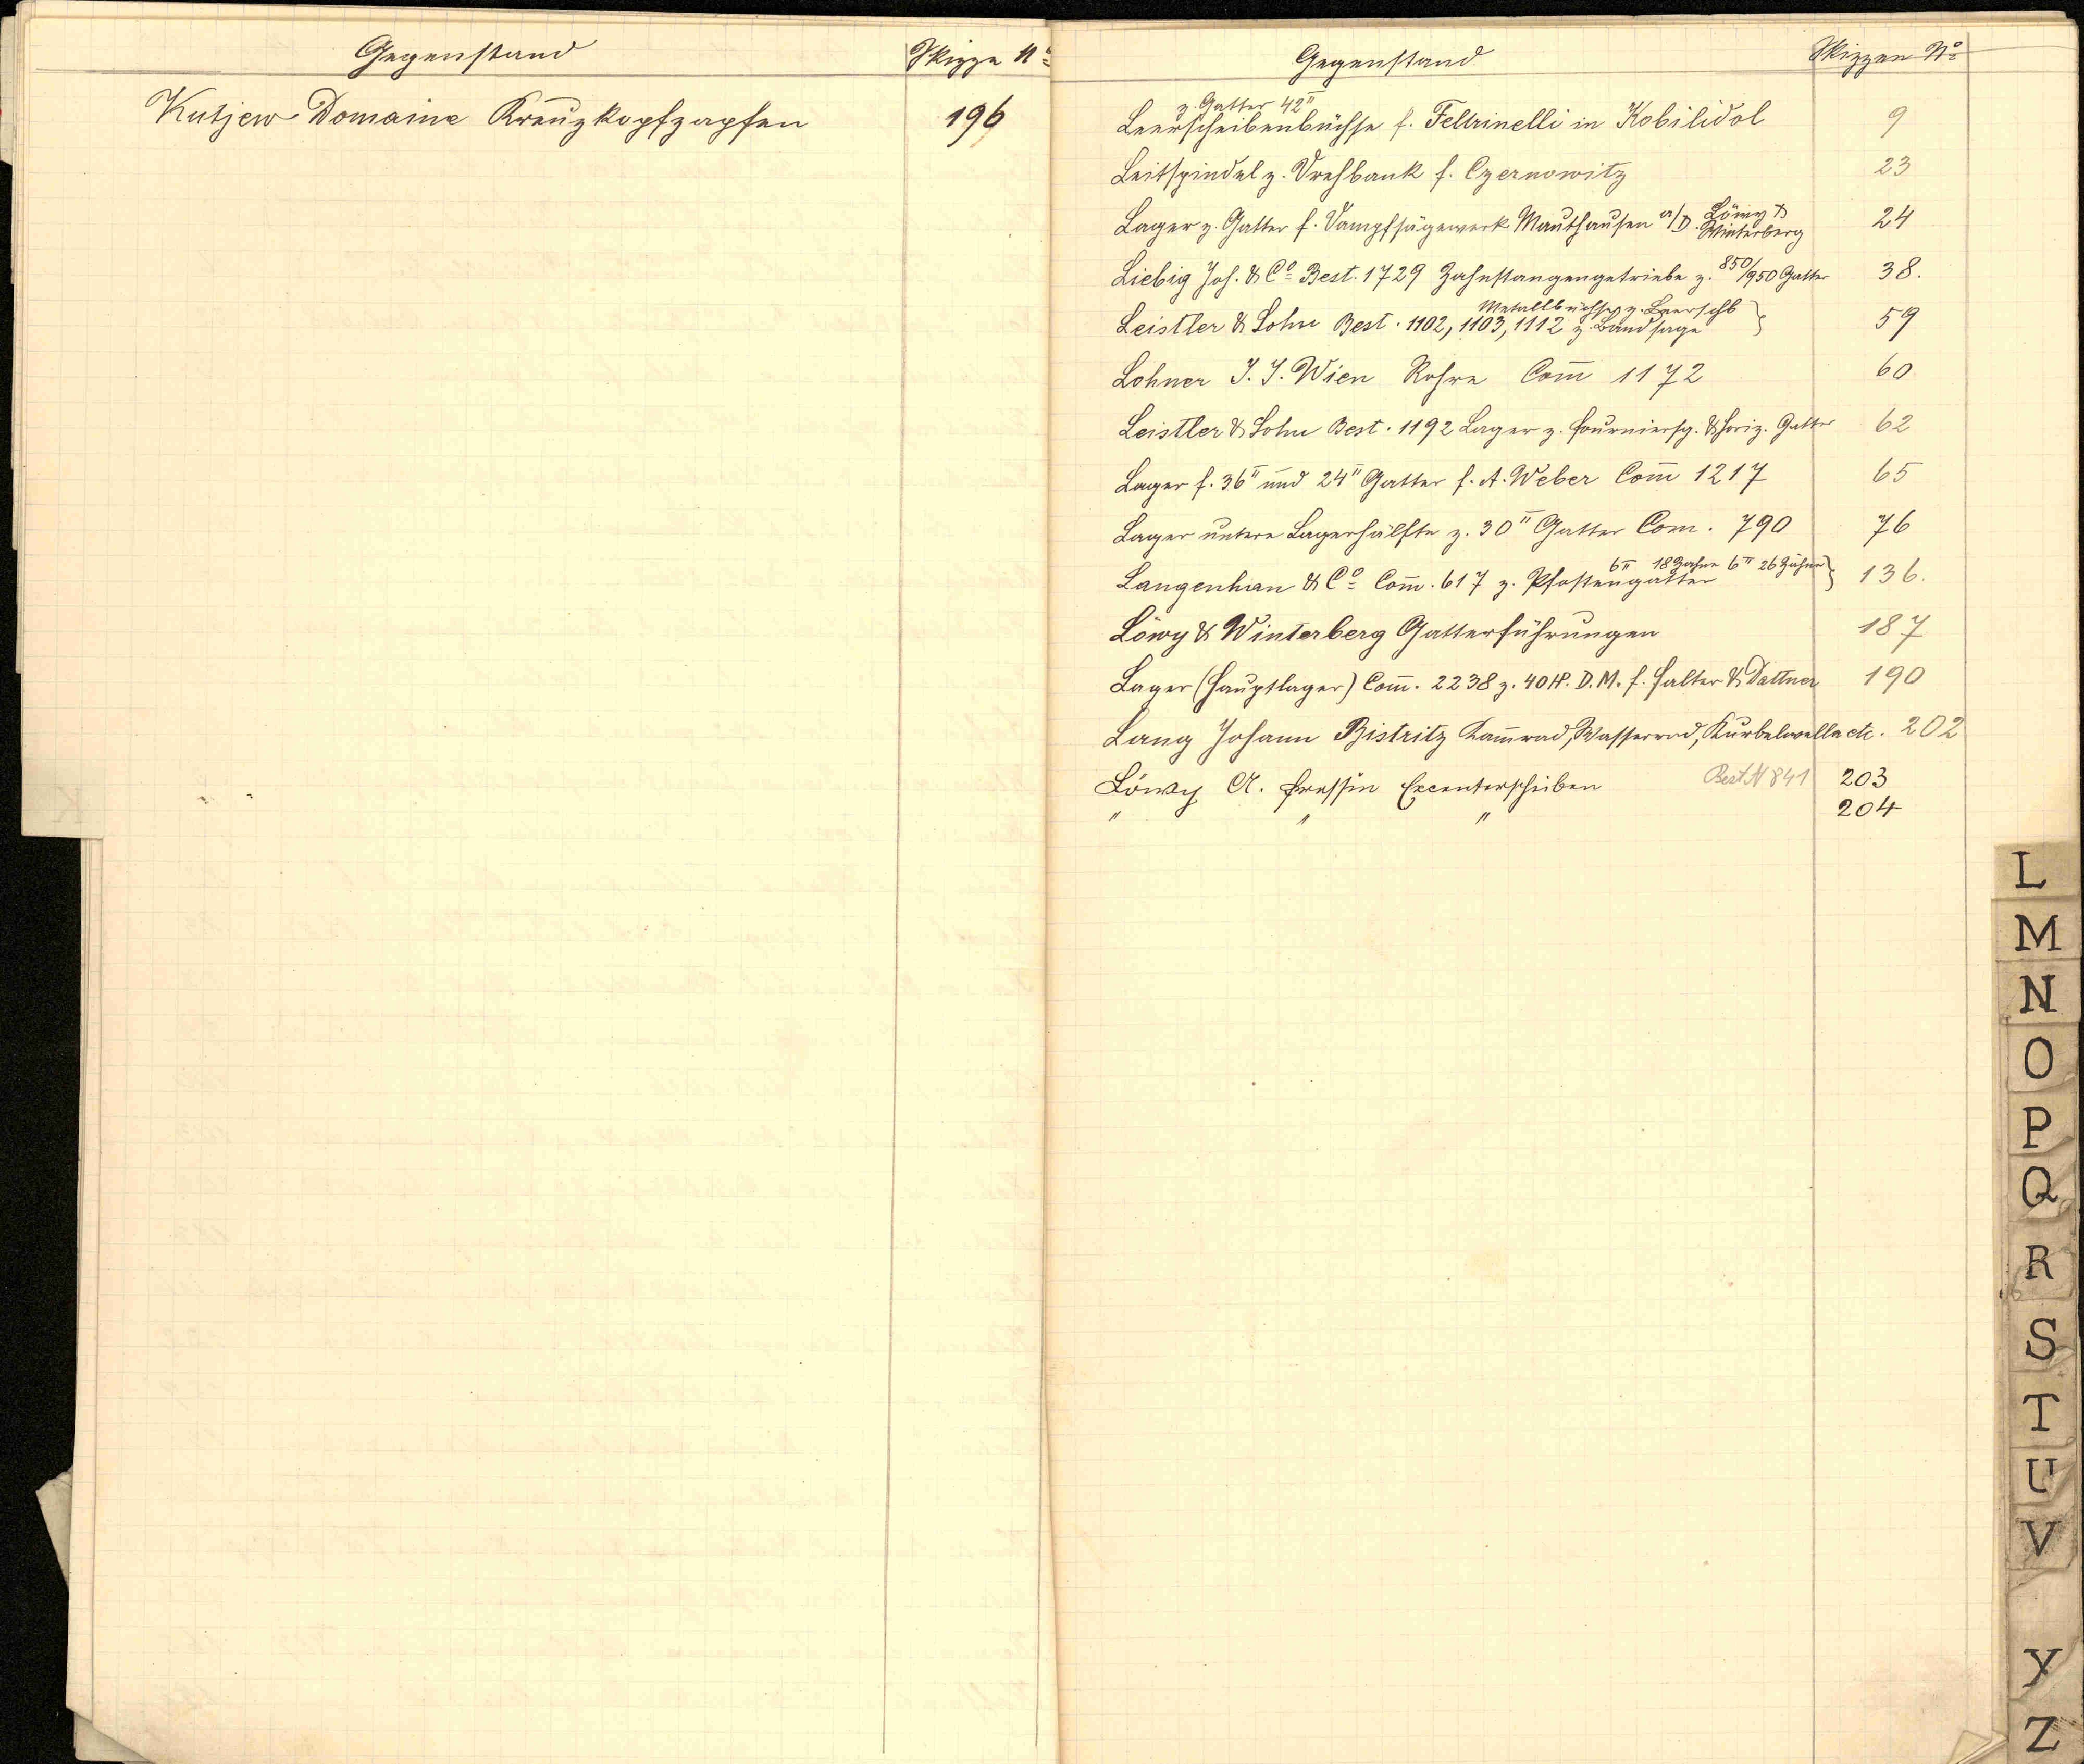 Gegenstand Skizze Nº
Kutjew Domaine Kreuzkopfzapfen 196
K
Gegenstand Skizzen Nº
z. Gatter 42"
Leerscheibenbüchse f. Feltrinelli in Kobilidol 9
Leitspindel z. Drehbank f. Czernowitz 23
Lager z. Gatter f. Dampfsägewerk Mauthausen a/D. Löwy & Winterberg 24
Liebig Joh. & Cº Best. 1729 Zahnstangengetriebe z. 850/950 Gatter 38.
Metallbüchse z. Leerschb
Leistler & Sohn Best. 1102, 1103, 1112 z. Bandsage } 59
Lohner J. J. Wien Rohre Com̅ 1172 60
Leistler & Sohn Best. 1192 Lager z. Fourniersg. & horiz. Gatter 62
Lager f. 36" und 24" Gatter f. A. Weber Com̅ 1217 65
Lager untere Lagerhälfte z. 30" Gatter Com. 790 76
6" 18 Zähne 6" 26 Zähne
Langenhan & Cº Com̅. 617 z. Pfostengatter } 136.
Löwy & Winterberg Gatterführungen 187
Lager (Hauptlager) Com̅. 2238 z. 40 H. D. M. f. Halter & Dattner 190
Lang Johann Bistritz Kam̅rad, Wasserrad, Kurbelwelle etc. 202
Löwy A. Pressin Excenterscheiben Best. N 841 203
" " " 204
L
M
N
O
P
Q
R
S
T
U
V
Y
Z